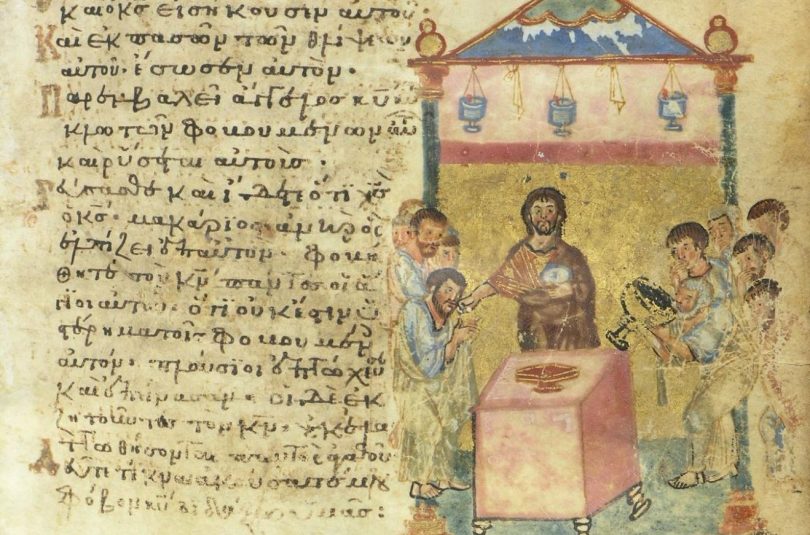 καὶ ὁ κς εἰσήκουσεν αὐτοῦ
Καὶ ἐκ πασῶν τῶν θλίψεων
αὐτοῦ· ἔσωσεν αὐτόν·
Παρεμβαλεῖ ἄγγελος κυ κύ
κλω τῶν φοβουμένων αὐτὸν
καὶ ῥύσεται αὐτούς:
Γεύσασθε καὶ ἴδετε ὅτι χς
ὁ κς· μακάριος ἀνὴρ ὃς
ἐλπίζει ἐπ' αὐτόν· Φοβή
θητε τὸν κν πάντες οἱ ἅ
γιοι αὐτοῦ· ὅτι οὐκ ἔστιν ὑ
στέρημα τοῖς φοβουμένοις
αὐτόν· πλούσιοι ἐπτώχευσαν
καὶ ἐπείνασαν· οἱ δὲ ἐκ
ζητοῦντες τὸν κν· οὐκ ἐλατ
τωθήσονται παντὸς ἀγαθοῦ
Δεῦτε τέκνα ἀκούσατέ μου
φόβον κυ διδάξω ὑμᾶς: